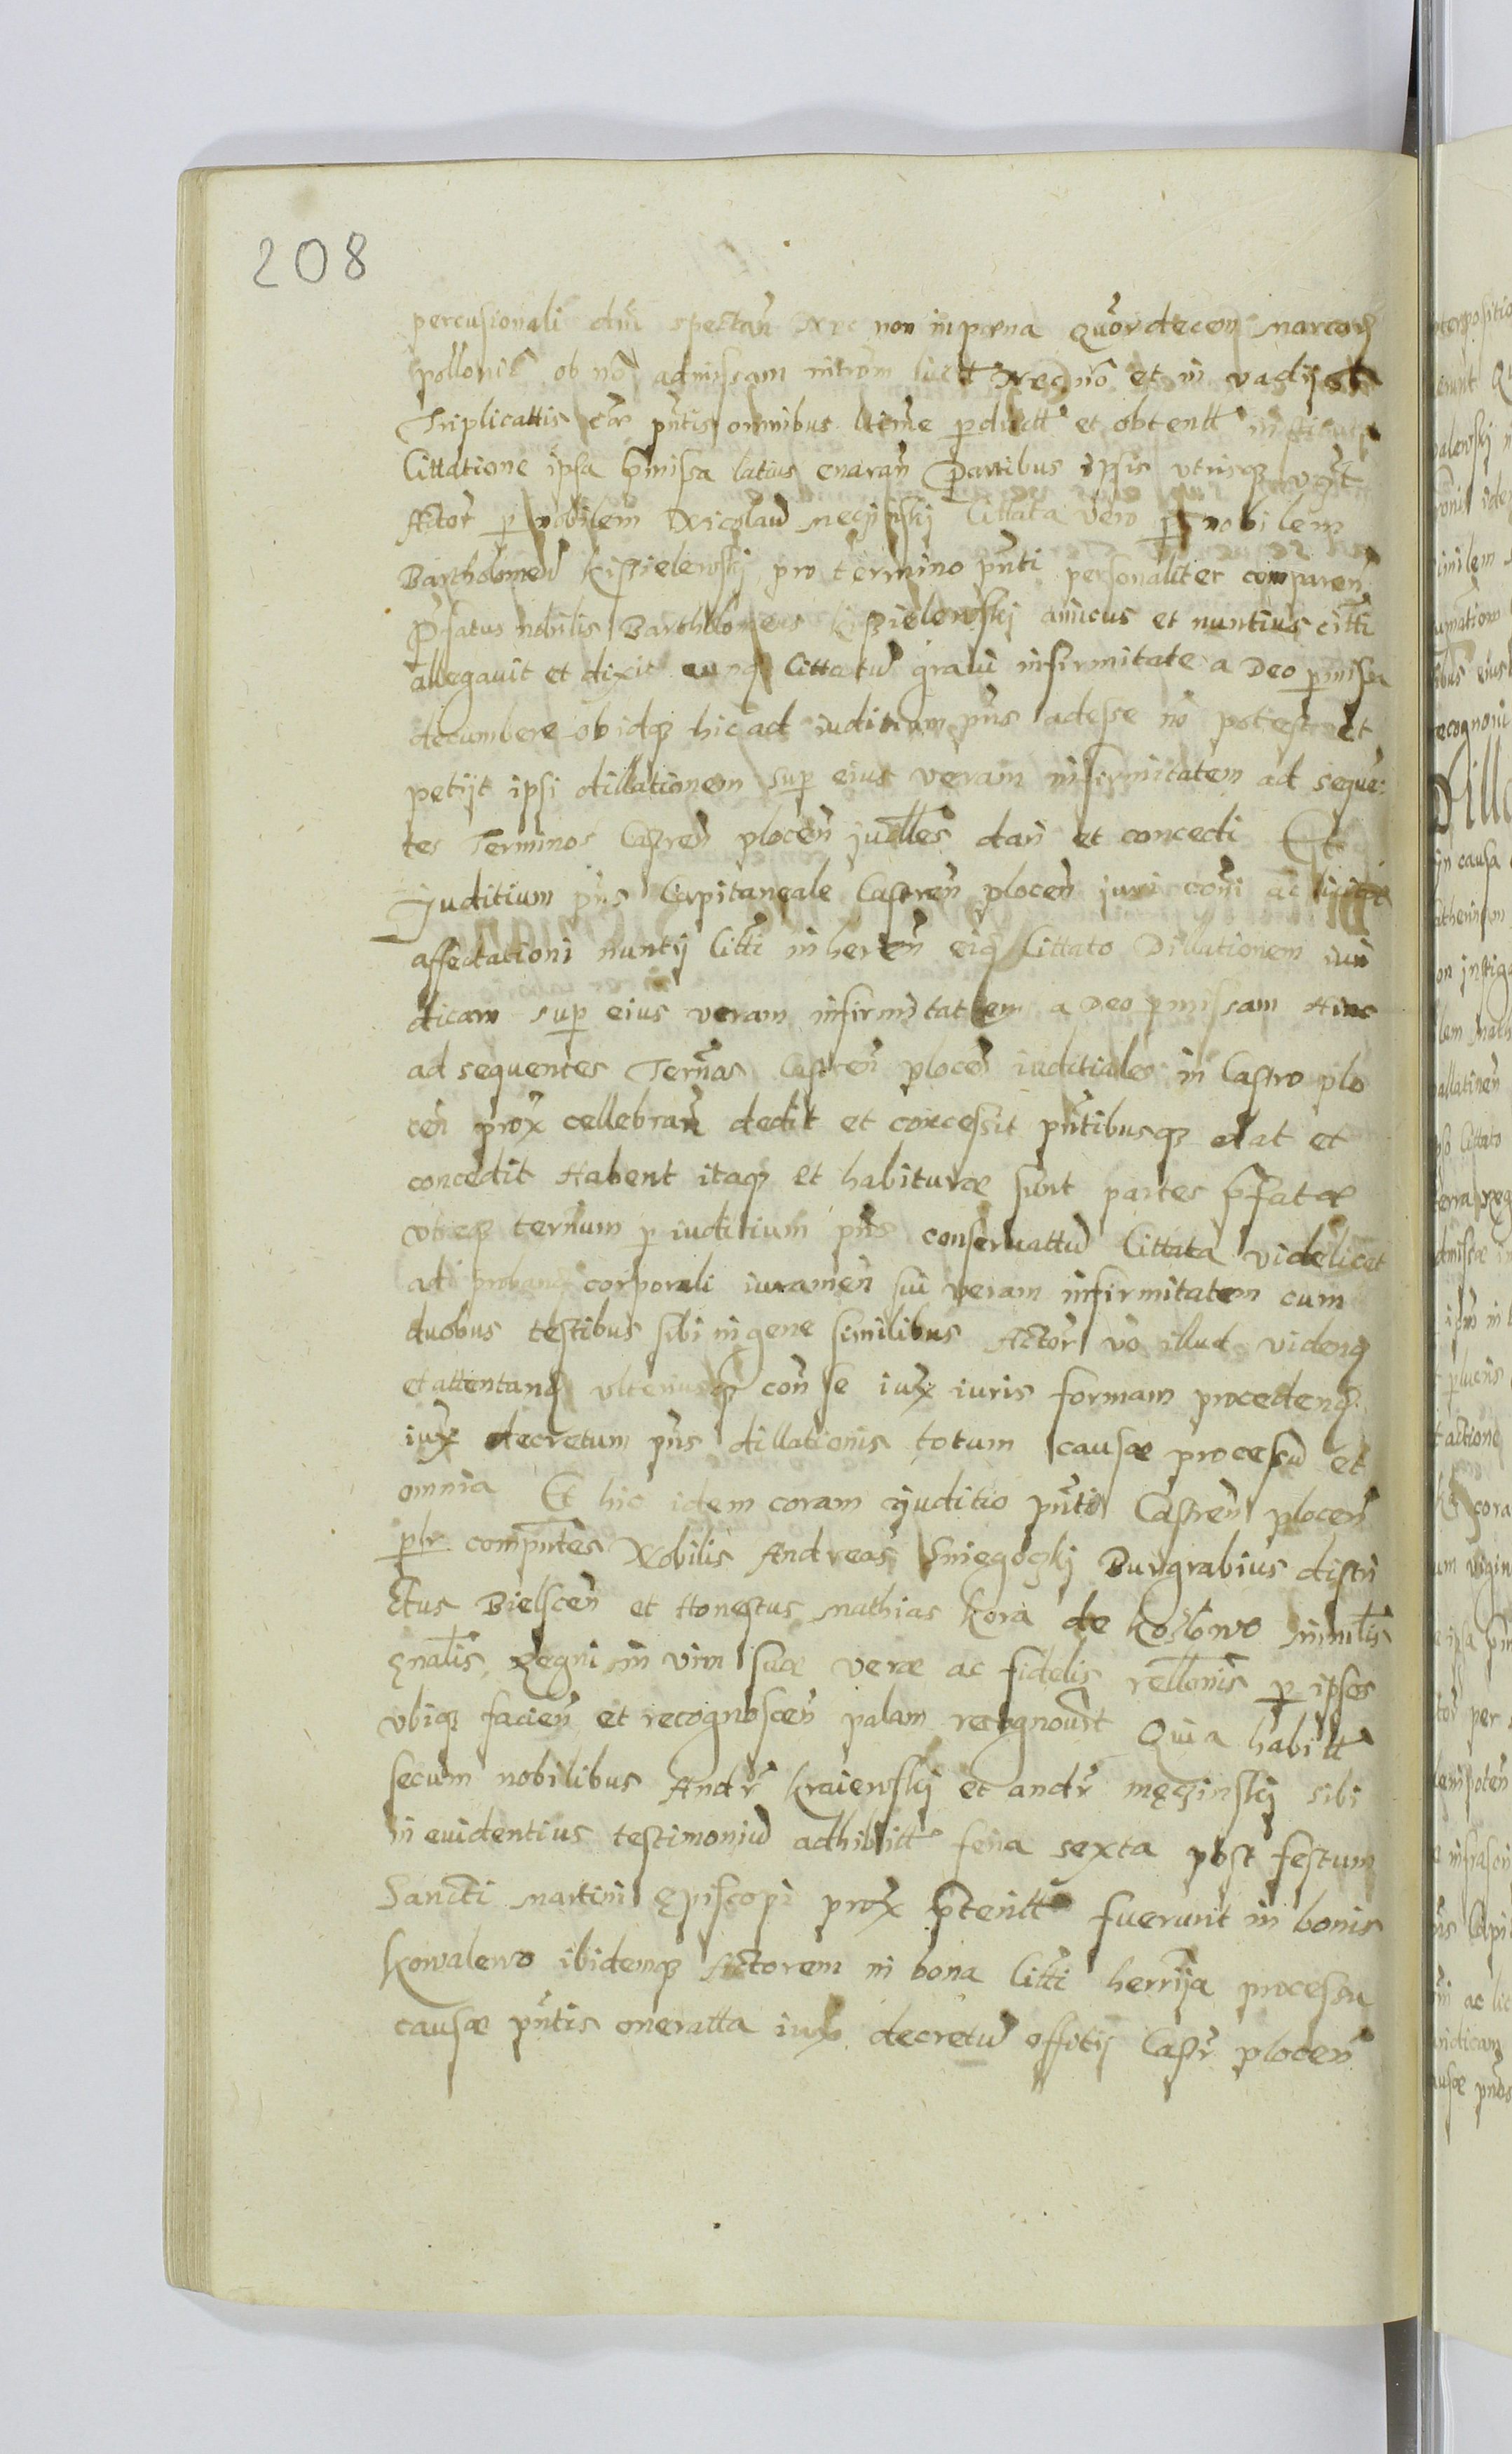 208
percusionali dni spectan nec non in pœna quordecem marcar
pollonic ob no admissam introm lucit Nec no et in vadijs
Triplicattis cae pntis omnibus ltime perductt et obtentt
Cittatione ipsa pmissa latius enaran Partibus ipsis utrisq
Actor p nobilem Nicolaum Citata vero p nobilem
Bartholomeu Kisielewskj pro termino pnti personaliter comparen
Pfatus nobilis Bartholomeus Kisielewskj amicus et nuntius citti
allegavit et dixit eunq Cittatu gravi infirmitate a Deo pmissa
decumbere ob idq hic ad iuditium pns adesse no potest et
petijt ipsi dillationem sup eius veram infirmitatem ad seque:
tes Terminos Castren plocen judlles dari et concedi Et
Juditium pns Capitaneale Castren plocen iuri coni ac
affectationi nuntij Citti inheren eiq Cittato Dillationem iuri
dicam sup eius veram infirmitattem a Deo pmissam Hinc
ad sequentes Ternos Castren plocen iuditiales in Castro plo
cen prox cellebran dedit et concessit pntibusq dat et
concedit Habent itaq et habituræ sunt partes pfatæ
utreq ternum p iuditium pns conservattu Cittata videlicet
ad proband corporali iuramen sui veram infirmitatem cum
duobus testibus sibi in gene similibus Actor vo illud videnq
et attentand ulteriusq con se iux iuris formam procedend
iux decretum pns dillationis totum causæ processu et
omnia Et hic idem coram Juditio pnti Castren plocen
plr compntes Nobilis Andreas Sniegoczkj Burgrabius distri
ctus Bielscen et Honestus Mathias Kora de minrlis
gnalis Regni in vim suæ veræ ac fidelis rellonis p ipsos
ubiq facien et recognoscen palam recognovert Quia habitt
secum nobilibus Andr Kraiewskj et andr sibi
in evidentius testimoniu adhibitt feria sexta post festum
Sancti Martini Episcopi prox pteritt fuerunt in bonis
Kowalewo ibidemq Actorem in bona Citti herrija processu
causæ pntis oneratta iux decretu offitij Castr plocen